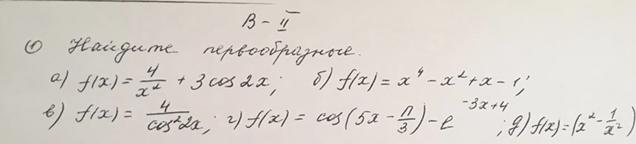 В - II
① Найдите первообразные.
а) f(x) = 4/x² + 3 cos 2x; б) f(x) = x⁴ - x² + x - 1;
в) f(x) = 4/cos² 2x; г) f(x) = cos(5x - π/3) - e^(-3x+4); д) f(x) = (x² - 1/x²)